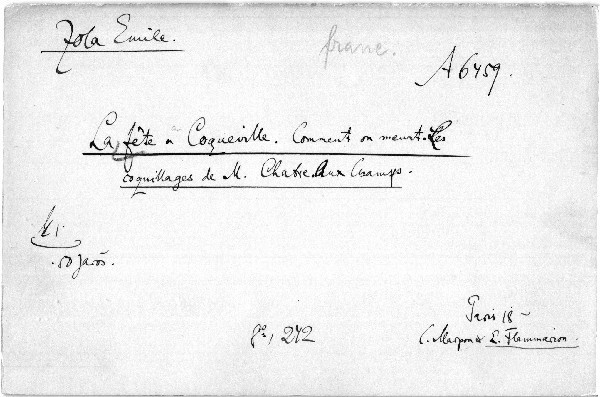 Zola Emile.
franc.
A 6459.
La fête à Coqueville. Comment on meurt. Les
coquillages de M. Chabre. Aux champs.
50 Jaroš.
8°, 272
Paris 18 –
C. Marpon & E. Flammarion.